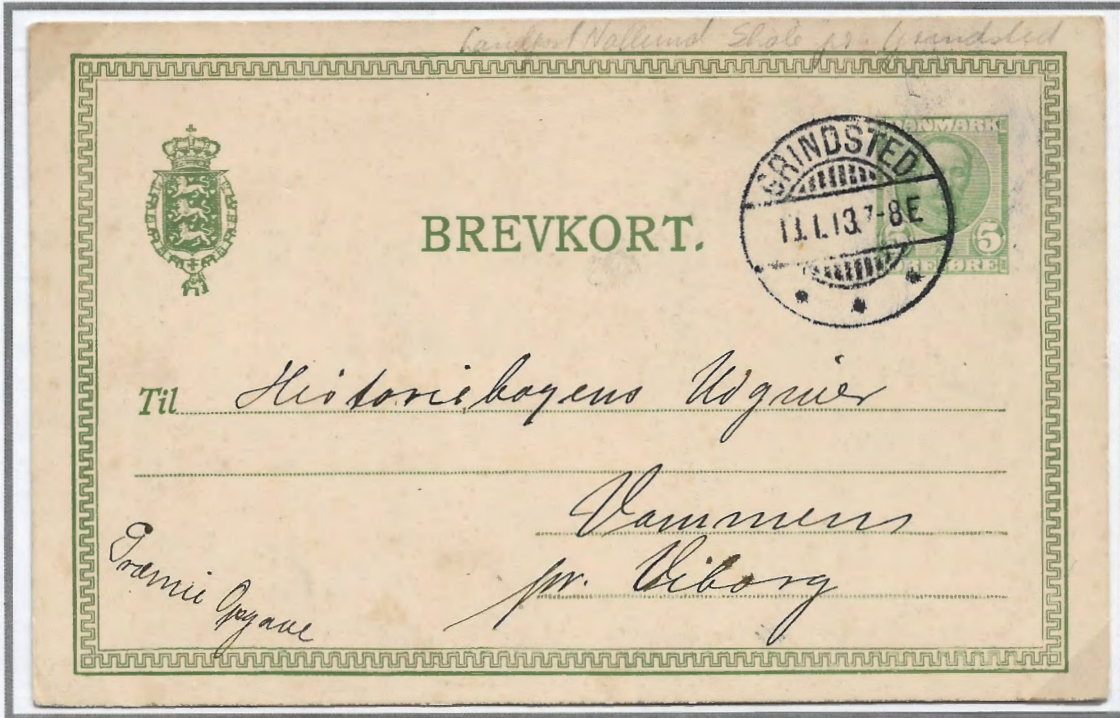 Landpost Nollund Skole pr. Grindsted
DANMARK
GRINDSTED
1.13. 7-8E
5
BREVKORT.
Til Historiebogens Udgiver
Vammen
pr. Viborg
Præmie Opgave